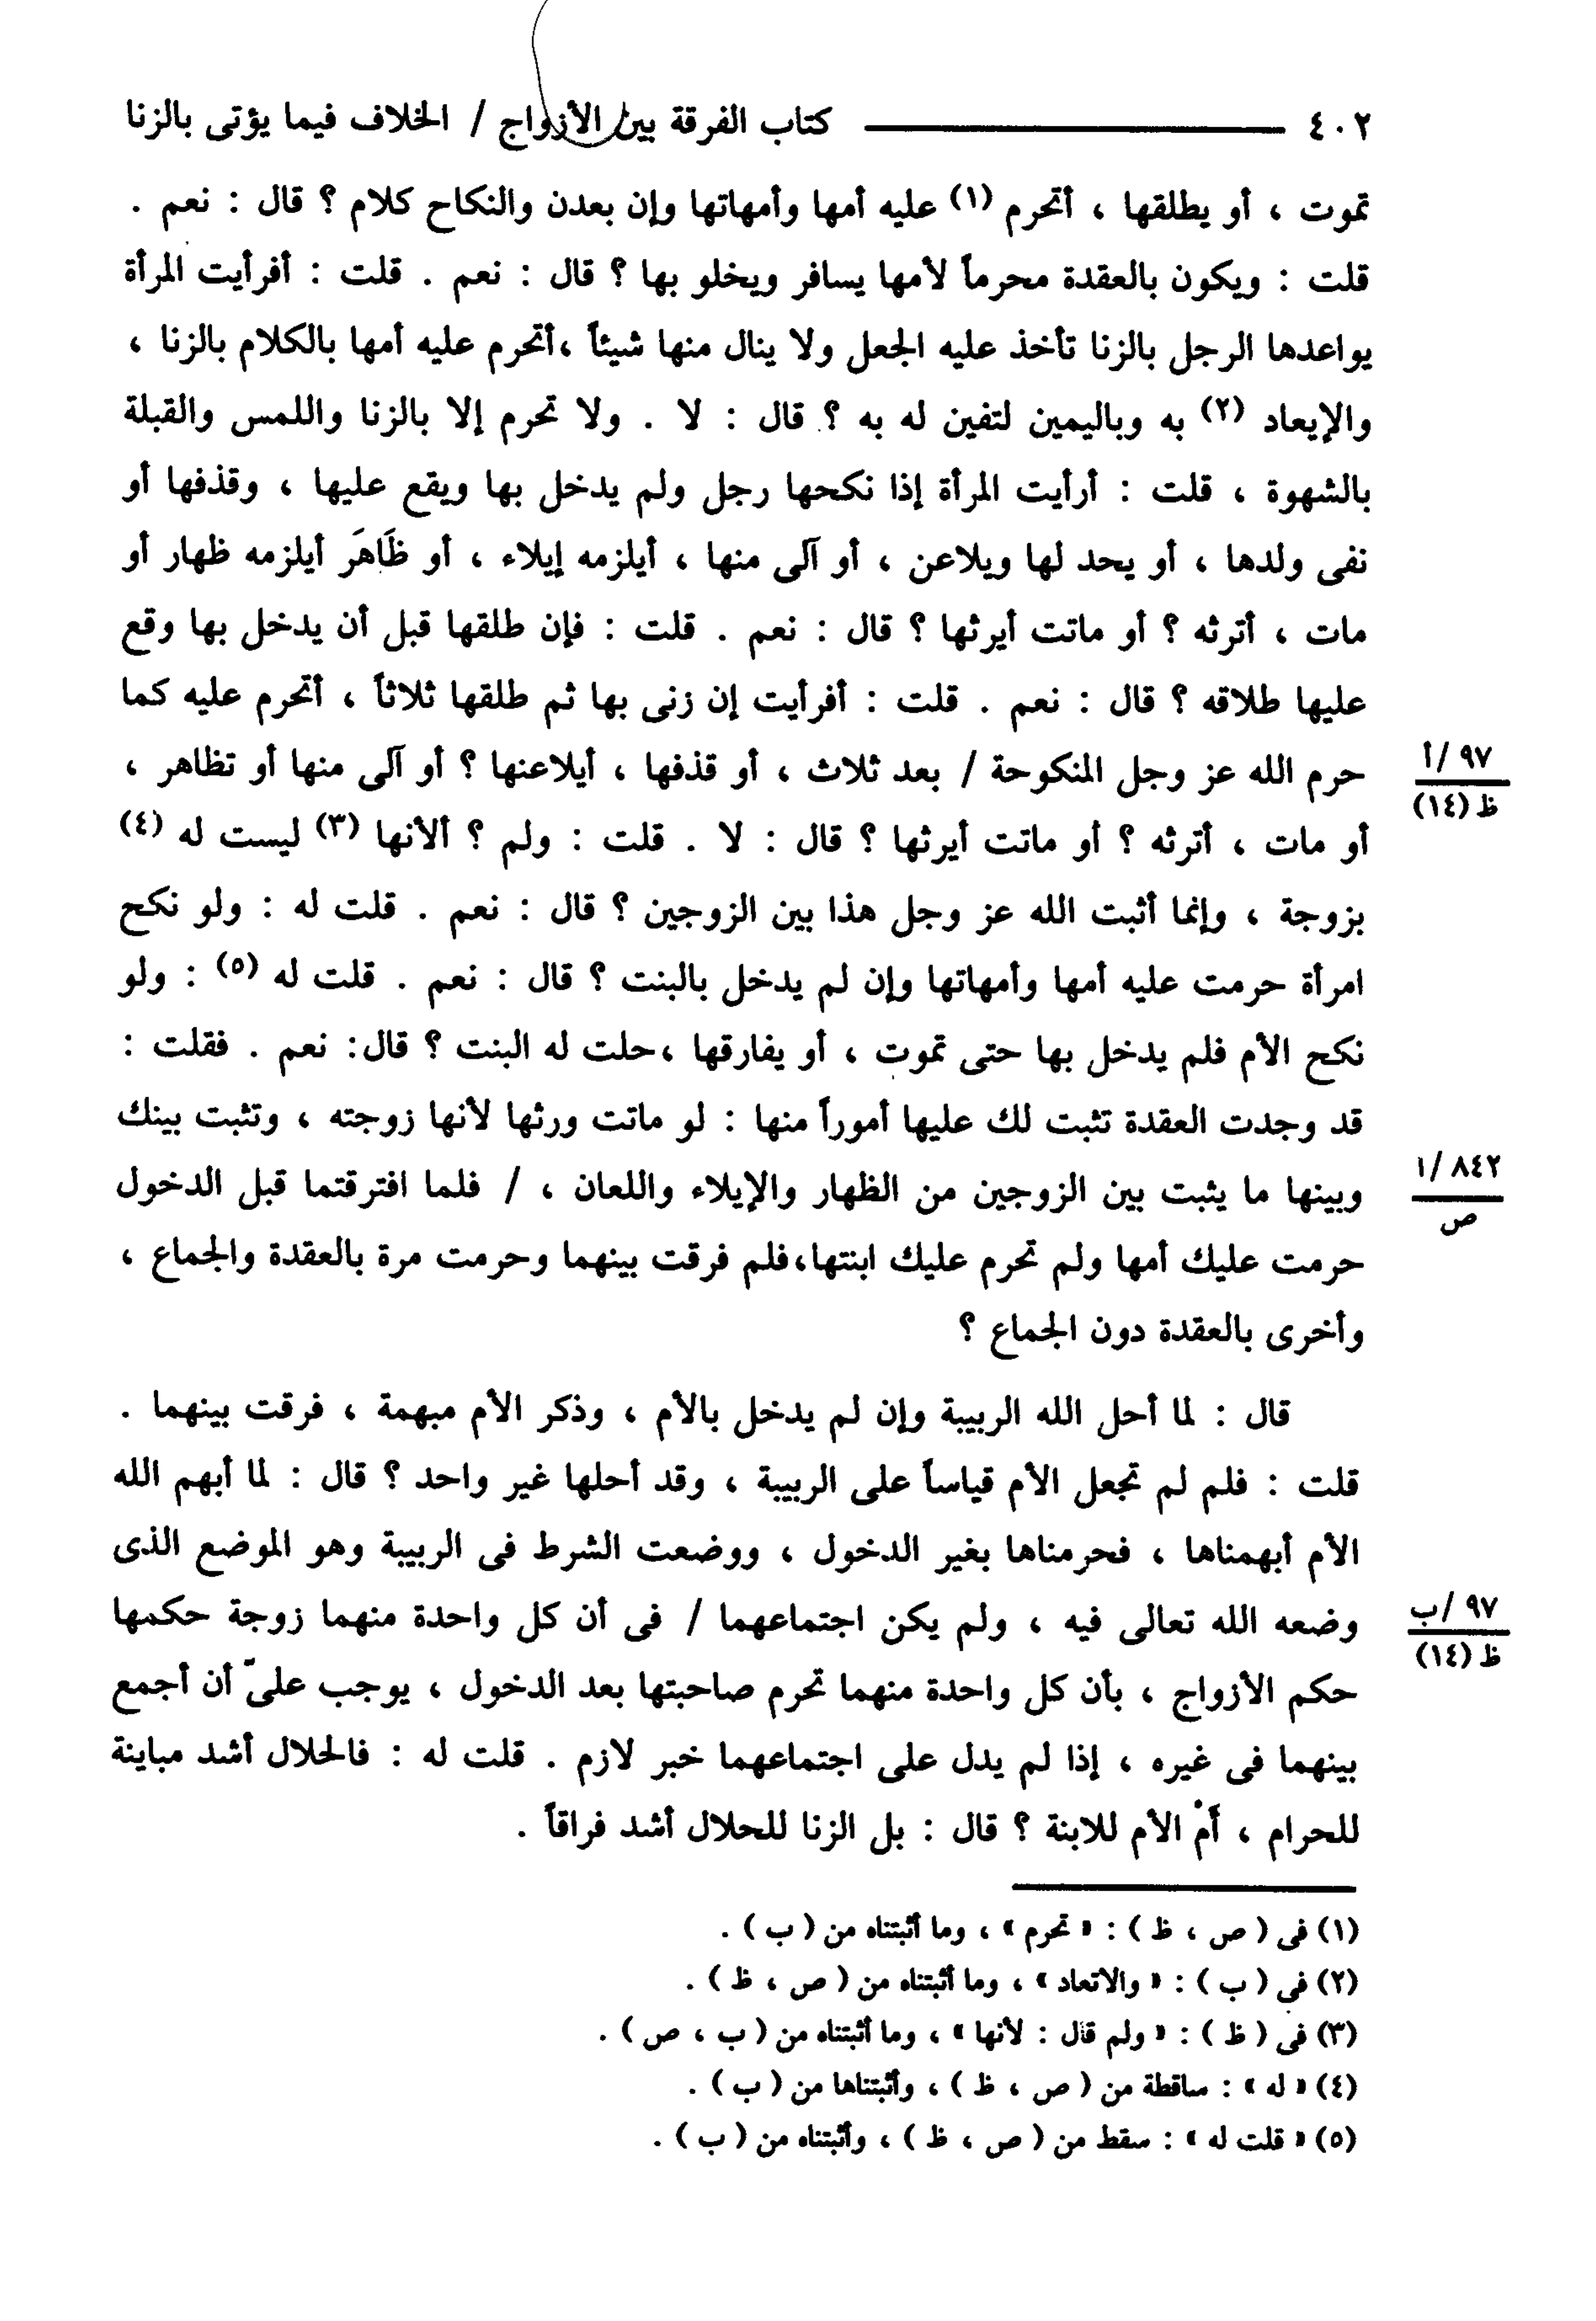 ٤٠٢ كتاب الفرقة بين الأزواج / الخلاف فيما يؤتى بالزنا
تموت ، أو يطلقها ، أتحرم (١) عليه أمها وأمهاتها وإن بعدن والنكاح كلام ؟ قال : نعم .
قلت : ويكون بالعقدة محرماً لأمها يسافر ويخلو بها ؟ قال : نعم . قلت : أفرأيت المرأة
يواعدها الرجل بالزنا تأخذ عليه الجعل ولا ينال منها شيئاً ،أتحرم عليه أمها بالكلام بالزنا ،
والإيعاد (٢) به وباليمين لتفين له به ؟ قال : لا . ولا تحرم إلا بالزنا واللمس والقبلة
بالشهوة ، قلت : أرأيت المرأة إذا نكحها رجل ولم يدخل بها ويقع عليها ، وقذفها أو
نفى ولدها ، أو يحد لها ويلاعن ، أو آلى منها ، أيلزمه إيلاء ، أو ظَاهَر أيلزمه ظهار أو
مات ، أترثه ؟ أو ماتت أيرثها ؟ قال : نعم . قلت : فإن طلقها قبل أن يدخل بها وقع
عليها طلاقه ؟ قال : نعم . قلت : أفرأيت إن زنى بها ثم طلقها ثلاثاً ، أتحرم عليه كما
حرم الله عز وجل المنكوحة / بعد ثلاث ، أو قذفها ، أيلاعنها ؟ أو آلى منها أو تظاهر ،
٩٧ /أ
ظ (١٤)
أو مات ، أترثه ؟ أو ماتت أيرثها ؟ قال : لا . قلت : ولم ؟ ألأنها (٣) ليست له (٤)
بزوجة ، وإنما أثبت الله عز وجل هذا بين الزوجين ؟ قال : نعم . قلت له : ولو نكح
امرأة حرمت عليه أمها وأمهاتها وإن لم يدخل بالبنت ؟ قال : نعم . قلت له (٥) : ولو
نكح الأم فلم يدخل بها حتى تموت ، أو يفارقها ،حلت له البنت ؟ قال: نعم . فقلت :
قد وجدت العقدة تثبت لك عليها أموراً منها : لو ماتت ورثها لأنها زوجته ، وتثبت بينك
وبينها ما يثبت بين الزوجين من الظهار والإيلاء واللعان ، / فلما افترقتما قبل الدخول
٨٤٢ /١
ص
حرمت عليك أمها ولم تحرم عليك ابنتها،فلم فرقت بينهما وحرمت مرة بالعقدة والجماع ،
وأخرى بالعقدة دون الجماع ؟
قال : لما أحل الله الربيبة وإن لم يدخل بالأم ، وذكر الأم مبهمة ، فرقت بينهما .
قلت : فلم لم تجعل الأم قياساً على الربيبة ، وقد أحلها غير واحد ؟ قال : لما أبهم الله
الأم أبهمناها ، فحرمناها بغير الدخول ، ووضعت الشرط فى الربيبة وهو الموضع الذى
وضعه الله تعالى فيه ، ولم يكن اجتماعهما / فى أن كل واحدة منهما زوجة حكمها
٩٧ /ب
ظ (١٤)
حكم الأزواج ، بأن كل واحدة منهما تحرم صاحبتها بعد الدخول ، يوجب علىّ أن أجمع
بينهما فى غيره ، إذا لم يدل على اجتماعهما خبر لازم . قلت له : فالحلال أشد مباينة
للحرام ، أَمْ الأم للابنة ؟ قال : بل الزنا للحلال أشد فراقاً .
(١) فى ( ص ، ظ ) : « تحرم » ، وما أثبتناه من ( ب ) .
(٢) فى ( ب ) : « والاتعاد » ، وما أثبتناه من ( ص ، ظ ) .
(٣) فى ( ظ ) : « ولم قال : لأنها » ، وما أثبتناه من ( ب ، ص ) .
(٤) « له » : ساقطة من ( ص ، ظ ) ، وأثبتناها من ( ب ) .
(٥) « قلت له » : سقط من ( ص ، ظ ) ، وأثبتناه من ( ب ) .